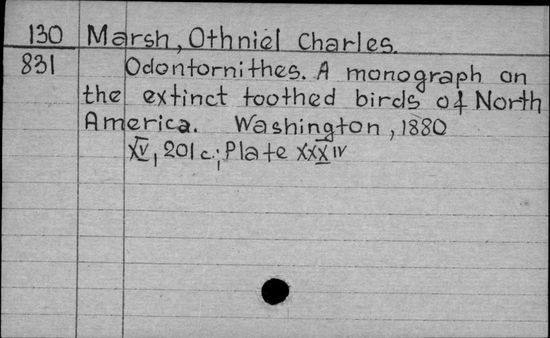 130 Marsh, Othniel Charles.
831 Odontornithes. A monograph on
the extinct toothed birds of North
America. Washington, 1880
XV, 201 c.; Plate XXXIV